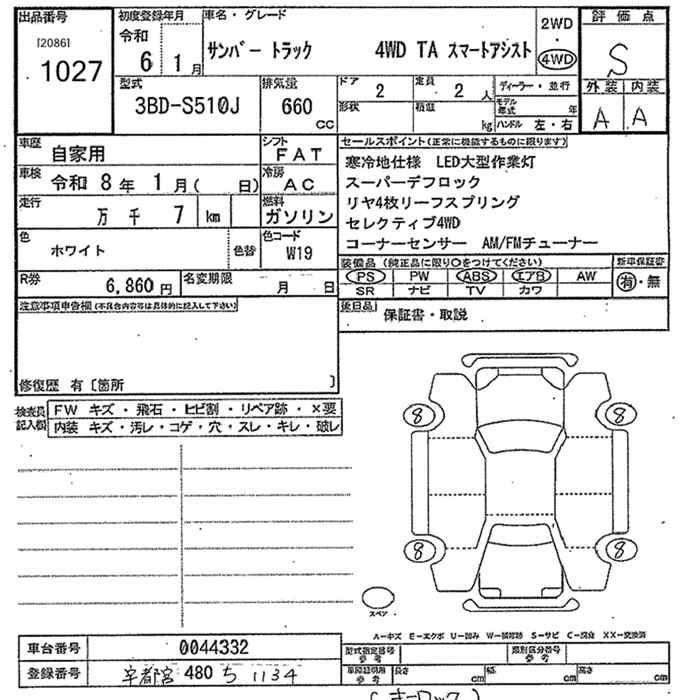 出品番号
[2086]
1027
初度登録年月
令和
6 1月
車名・グレード
サンバー トラック 4WD TA スマートアシスト
2WD
・
4WD
評価点
S
外装 内装
A A
型式
3BD-S510J
排気量
660
CC
ドア 2
定員 2人
形状
積載 kg
ディーラー・並行
モデル年式 年
ハンドル 左・右
車歴
自家用
シフト
FAT
車検
令和 8年 1月( 日)
冷房
AC
走行
万 千 7 km
燃料
ガソリン
色
ホワイト
色替
色コード
W19
R券
6,860円
名変期限
月 日
セールスポイント(正常に機能するものに限ります)
寒冷地仕様 LED大型作業灯
スーパーデフロック
リヤ4枚リーフスプリング
セレクティブ4WD
コーナーセンサー AM/FMチューナー
装備品(純正品に限り○をつけてください)
PS PW ABS エアB AW
SR ナビ TV カワ
新車保証書
有・無
注意事項申告欄(不具合内容等は具体的に記入して下さい)
修復歴 有〔箇所 〕
後日品
保証書・取説
検査員記入欄
FW キズ・飛石・ヒビ割・リペア跡・×要
内装 キズ・汚レ・コゲ・穴・スレ・キレ・破レ
8 8
8 8
スペア
A-キズ E-エクボ U-凹み W-補修跡 S-サビ C-腐食 XX-交換済
車台番号
0044332
登録番号
宇都宮 480 ち 1134
型式指定番号 参考
類別区分番号 参考
長さ cm
幅 cm
高さ cm
(キーロック)